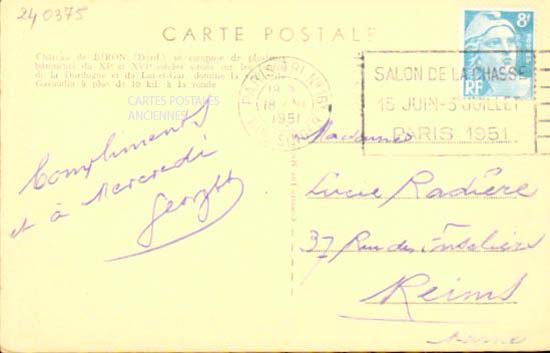 240375
CARTE POSTALE
Château de BIRON (Dord.) se compose de plusieurs
bâtiments du XIe et XVIe siècles situés sur les
de la Dordogne et du Lot-et-Gar. domine la
à plus de 10 kil. à la ronde
CARTES POSTALES
ANCIENNES
8F
RF
PARIS TRI
18
1951
SALON DE LA CHASSE
15 JUIN-3 JUILLET
PARIS 1951
Compliments
et à Mercredi
Madame
Lucie Radière
37 Rue des
Reims
Marne